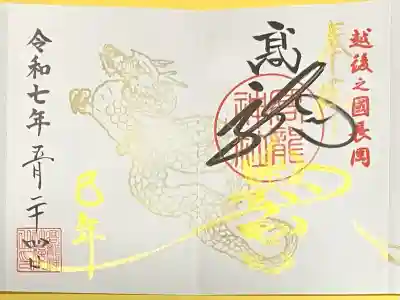 越後之國長岡
髙龍
高龍神社
巳年
令和七年五月二十四日